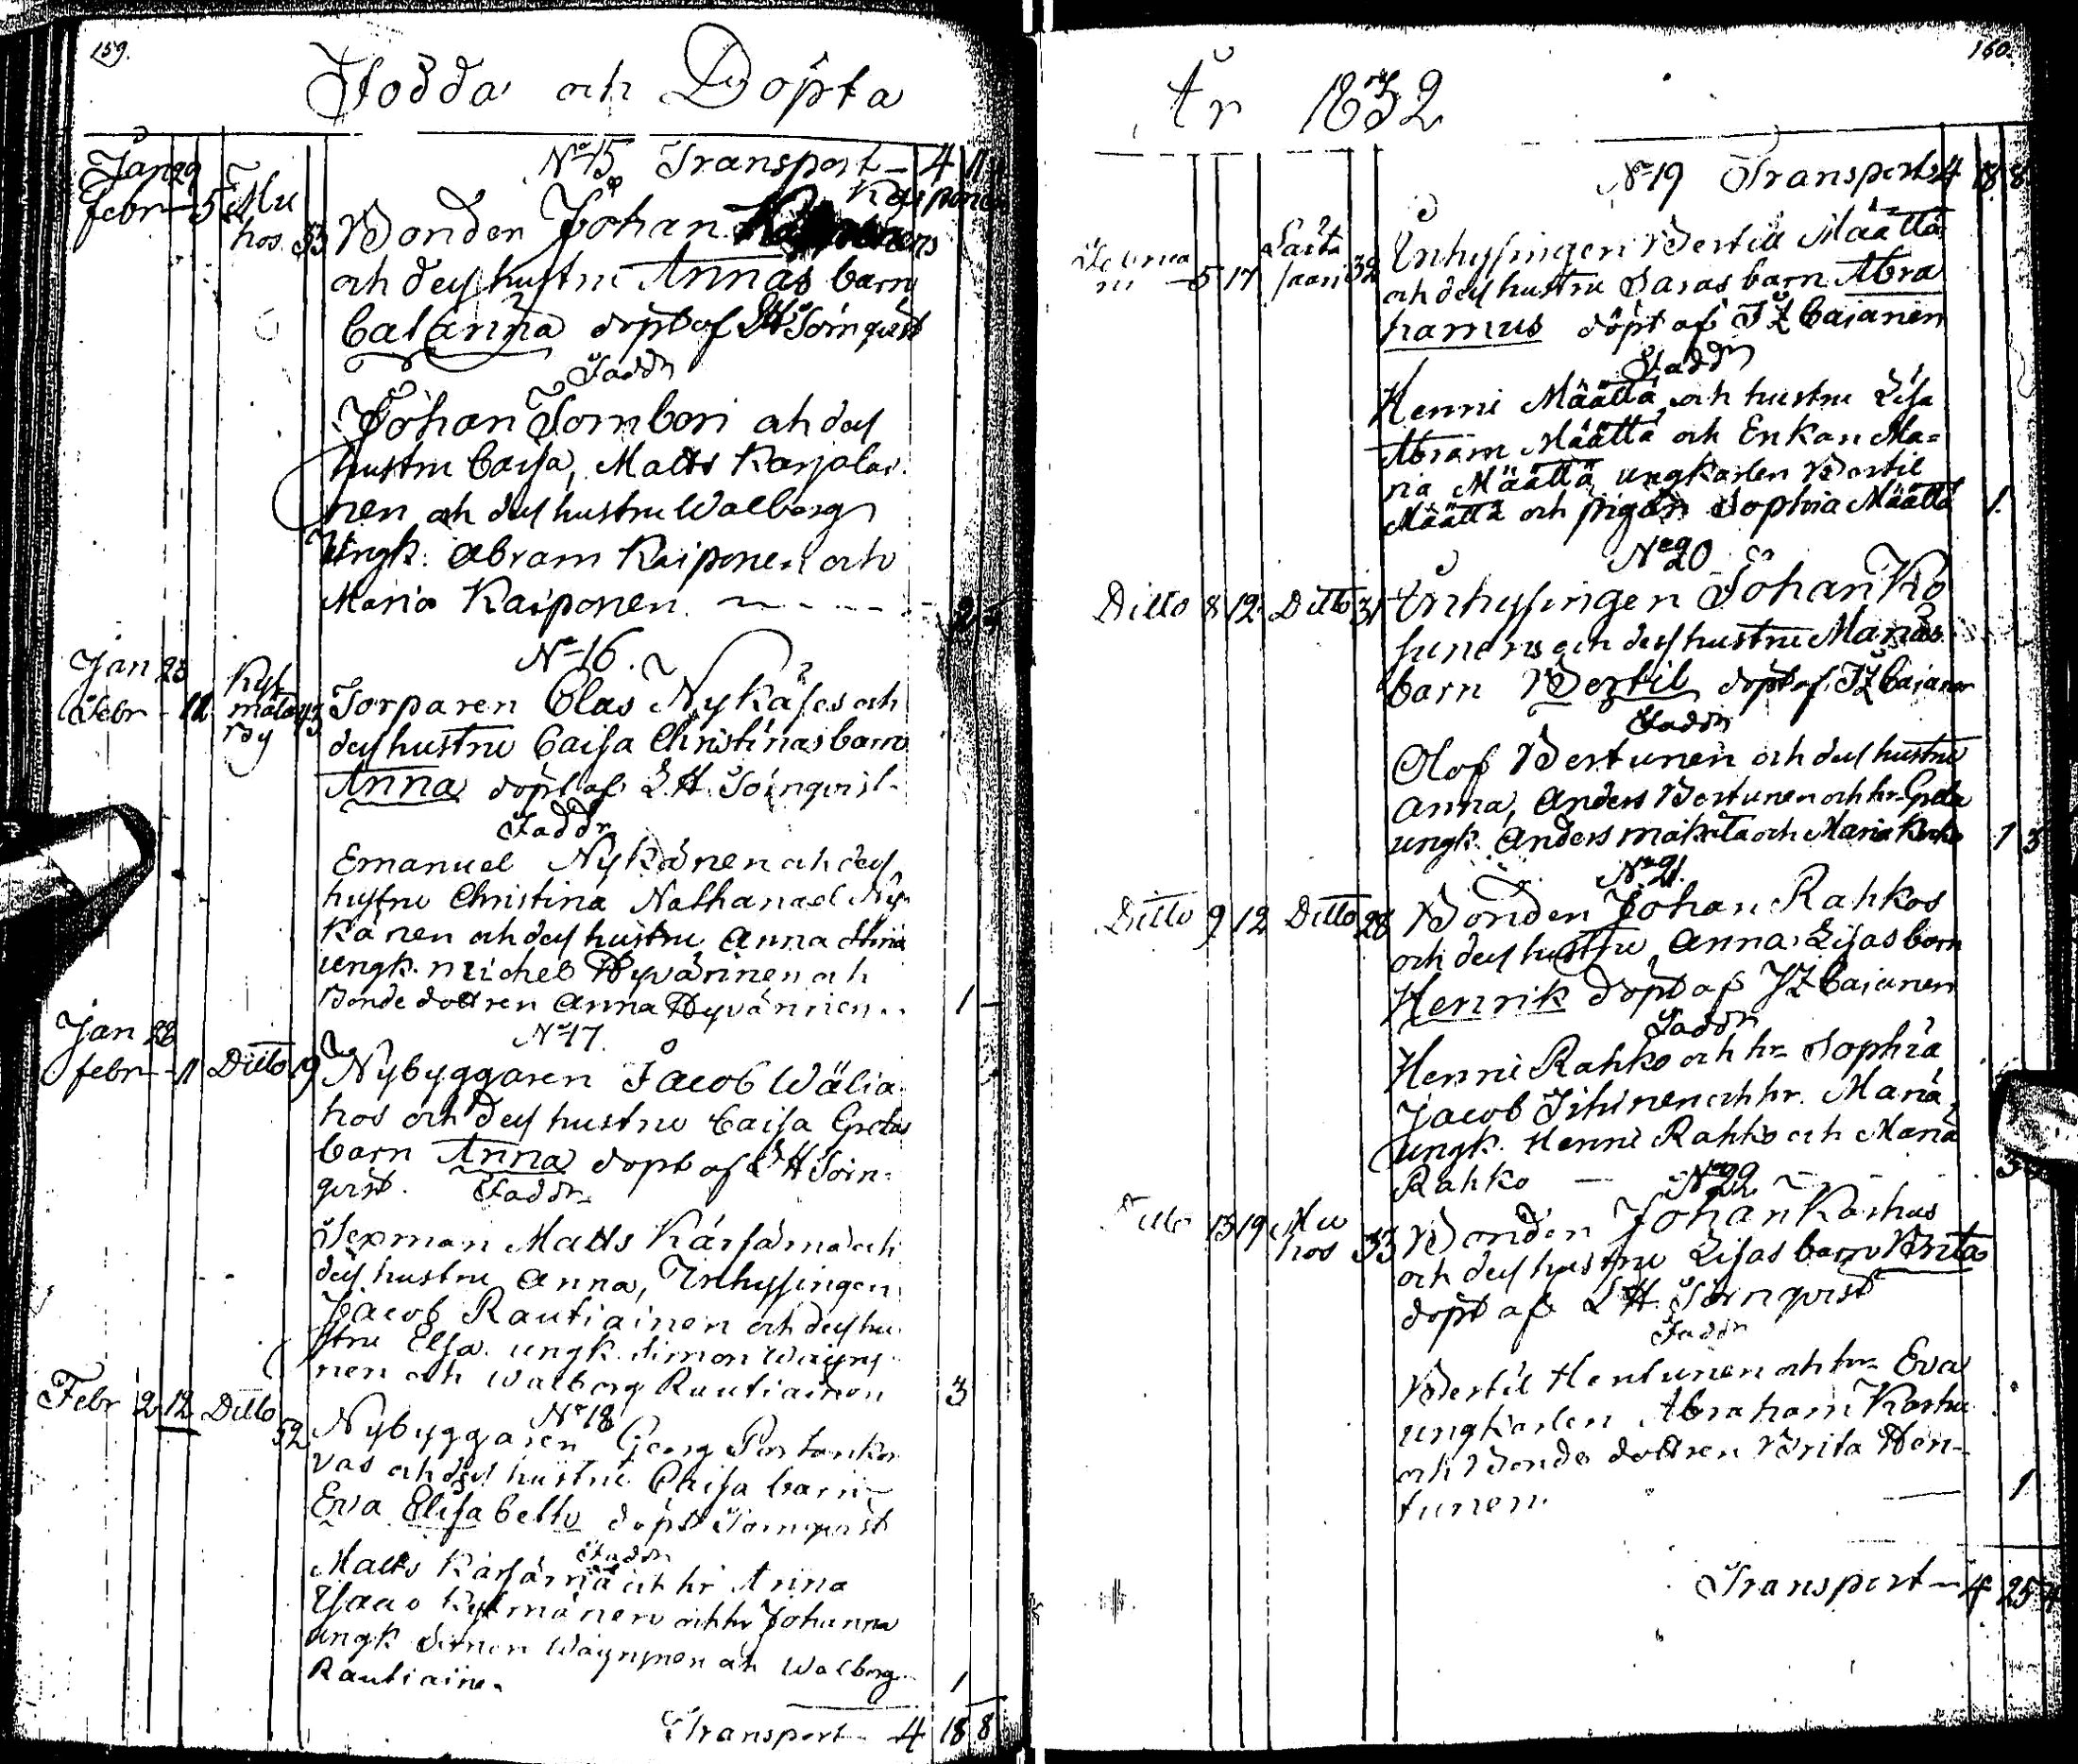 159.
Födda och Döpta
Jan 29
Febr 5
Mu
hos 33
No 15 Transport - 4 11
Kaiponens
Bonden Johan
och dess hustru Annas barn
Cat Anna döpt af LH Törnqvist
Faddr
Johan Tornberi och dess
hustru Caisa, Matts Karjalai-
nen och dess hustru Walborg
Ungk: Abram Kaiponen och
Maria Kaiponen. 2
No 16.
Jan 23
Febr - 12
Kyt
mäki
by
Torparen Olas Nykäses och
dess hustru Caisa Christinas barn
Anna döpt af L.H. Törnqvist.
Faddr
Emanuel Nykänen och dess
hustru Christina Nathanael Ny-
känen och dess hustru Anna Stina
ungk. Michel Hyvärinen och
Bonde dottren Anna Hyvärinen.. 1 -
No 17.
Jan 28
Febr - 11 Ditto 19
Nybyggaren Jacob Wälia-
hos och dess hustru Caisa Gretas
barn Anna döpt af LH Törn-
qvist. Faddr
Sexman Matts Kärsämä och
dess hustru Anna, Inhysingen
Jacob Rautiainen och dess hu-
stru Elsa. ungk. Simon Wäyry-
nen och Walborg Rautiainen 3
Febr 2 12 Ditto 32
No 18
Nybyggaren Georg Partanka-
vas och dess hustru Caisa barn
Eva Elisabeth döpt Törnqvist
Faddr
Matts Kärsämä och hr Anna
Isaac Kylmänen och hr Johanna
ungk Simon Wäyrynen och Walborg
Rautiainen 1
Transport - 4 18 8
160.
År 1832
No 19 Transport 4 18 8
Februa
ri - 5 17
Saari 32
Inhysingen Bertil Määttä
och dess hustru Saras barn Abra
hamus döpt af JZ Cajanen
Faddr
Henric Määttä och hustru Lisa
Abram Määttä och Enkan Ma-
ria Määttä, ungkarlen Bertil
Määttä och pigan Sophia Määttä 1
No 20
Ditto 8 12 Ditto 31
Inhysingen Johan Ko
sunens och dess hustru Marias
barn Bertil döpt af JZ Cajanen
Faddr
Olof Bertunen och dess hustru
Anna, Anders Bertunen och hr Greta
ungk. Anders Mäkäta och Maria 1 3
No 21.
Ditto 9 12 Ditto 28
Bonden Johan Rahkos
och dess hustru Anna Lisas barn
Henrik döpt af JZ Cajanen
Faddr
Henric Rahko och hr Sophia
Jacob Tihinen och hr. Maria,
ungk. Henric Rahko och Maria
Rahko - 3
No 22
Ditto 13 19 Mu
hos 33
Bonden Johan Karhus
och dess hustru Lisas barn Brita
döpt af LH Törnqvist
Faddr
Bertil Hentunen och hr Eva
ungkarlen Abraham Karhu
och Bonde dottren Brita Hen-
tunen. 1
Transport - 4 25